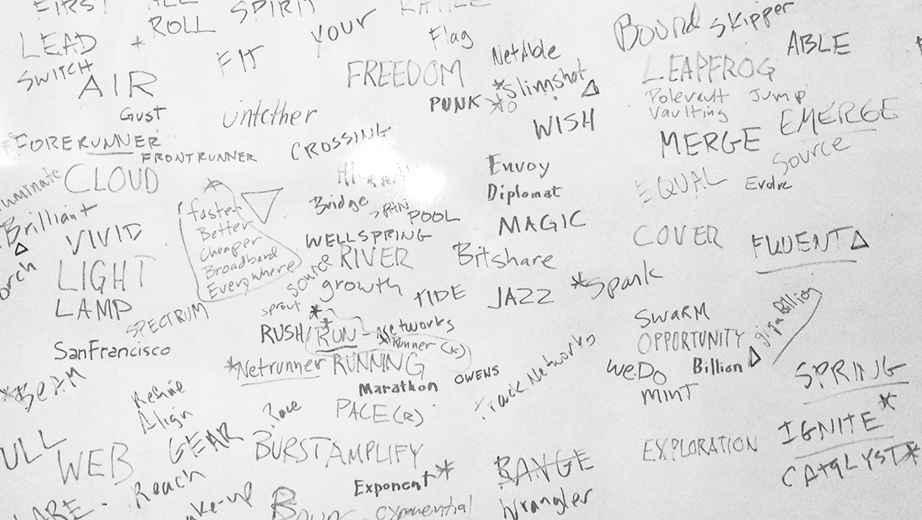 FIRST
ALL
SPIRIT
RATTLE
LEAD
ROLL
YOUR
Flag
Bound
Skipper
SWITCH
FIT
NetAble
ABLE
AIR
FREEDOM
*Slimshot
LEAPFROG
Gust
PUNK
Polevault
Jump
Vaulting
untether
WISH
EMERGE
FORERUNNER
FRONTRUNNER
CROSSING
MERGE
Source
Envoy
CLOUD
Diplomat
EQUAL
Evolve
Brilliant
faster
Better
Cheaper
Broadband
Everywhere
Bridge
SPAN
POOL
MAGIC
VIVID
WELLSPRING
COVER
FLUENT
LIGHT
source
RIVER
Bitshare
growth
TIDE
JAZZ
*Spank
LAMP
SPECTRUM
sprout
SWARM
gigaBillion
RUSH/RUN-Networks
Runner (k)
OPPORTUNITY
SanFrancisco
*Netrunner
RUNNING
OWENS
Track Networks
We.Do
Billion
*BEAM
Marathon
MINT
SPRING
Align
Race
PACE(R)
GEAR
BURST
AMPLIFY
EXPLORATION
IGNITE*
WEB
Reach
Exponent*
RANGE
CATALYST*
exponential
Wrangler